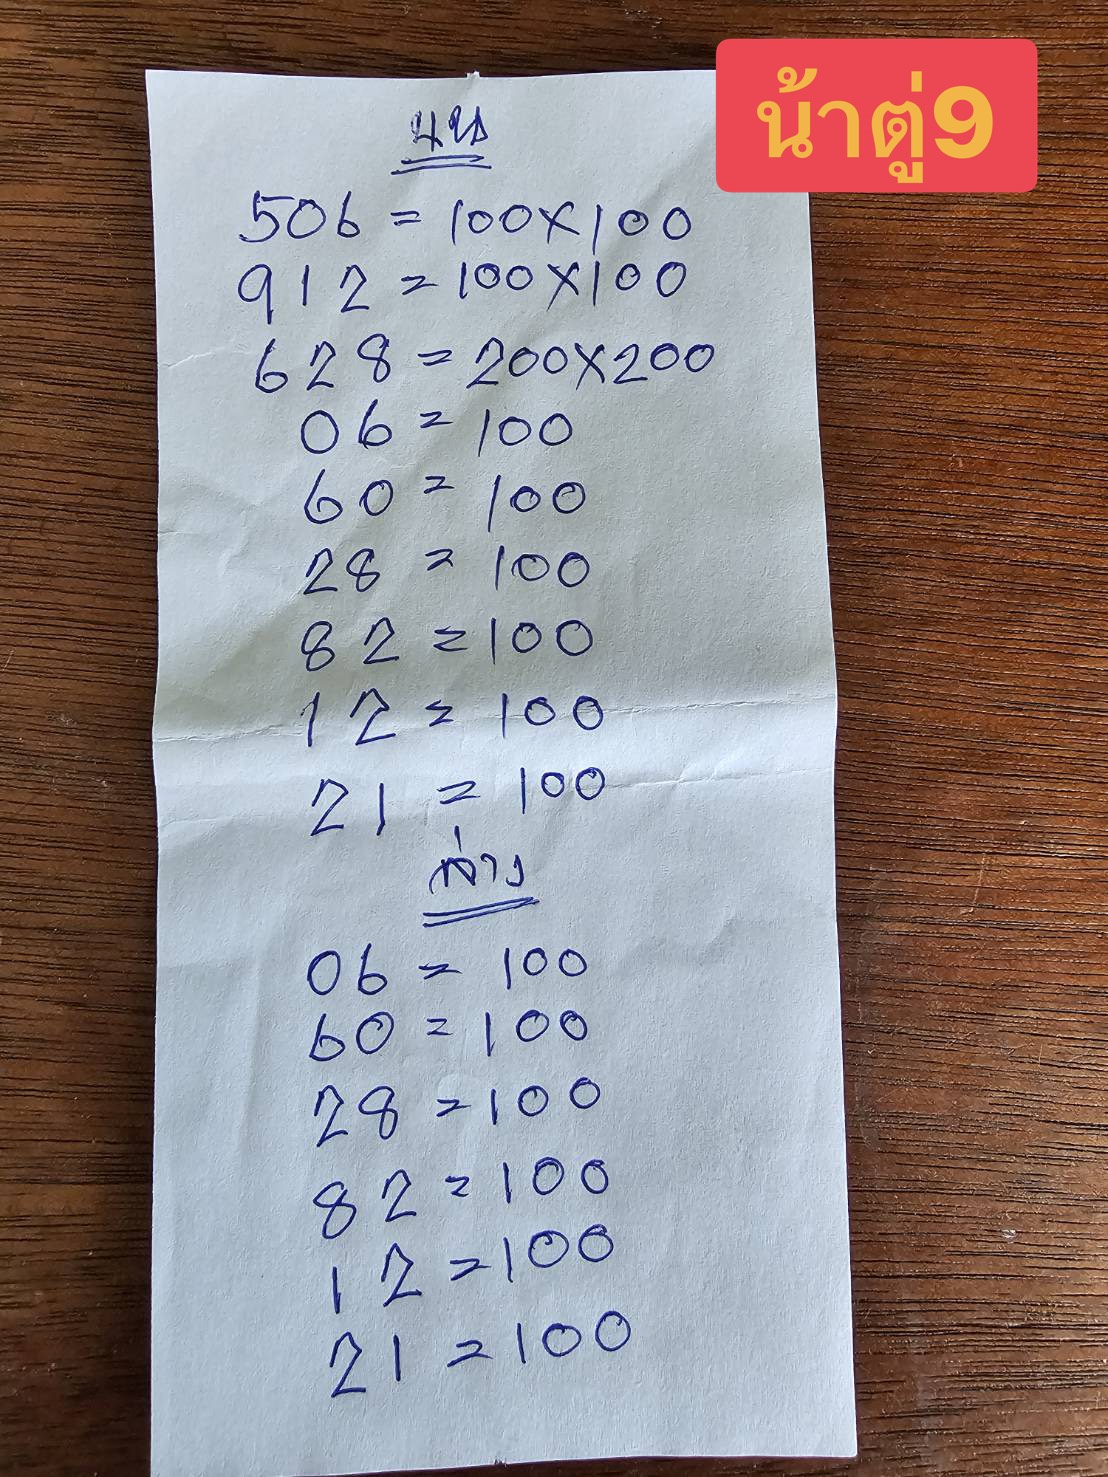 น้าตู่9
บน
506 = 100×100
912 = 100×100
628 = 200×200
06 = 100
60 = 100
28 = 100
82 = 100
12 = 100
21 = 100
ล่าง
06 = 100
60 = 100
28 = 100
82 = 100
12 = 100
21 = 100